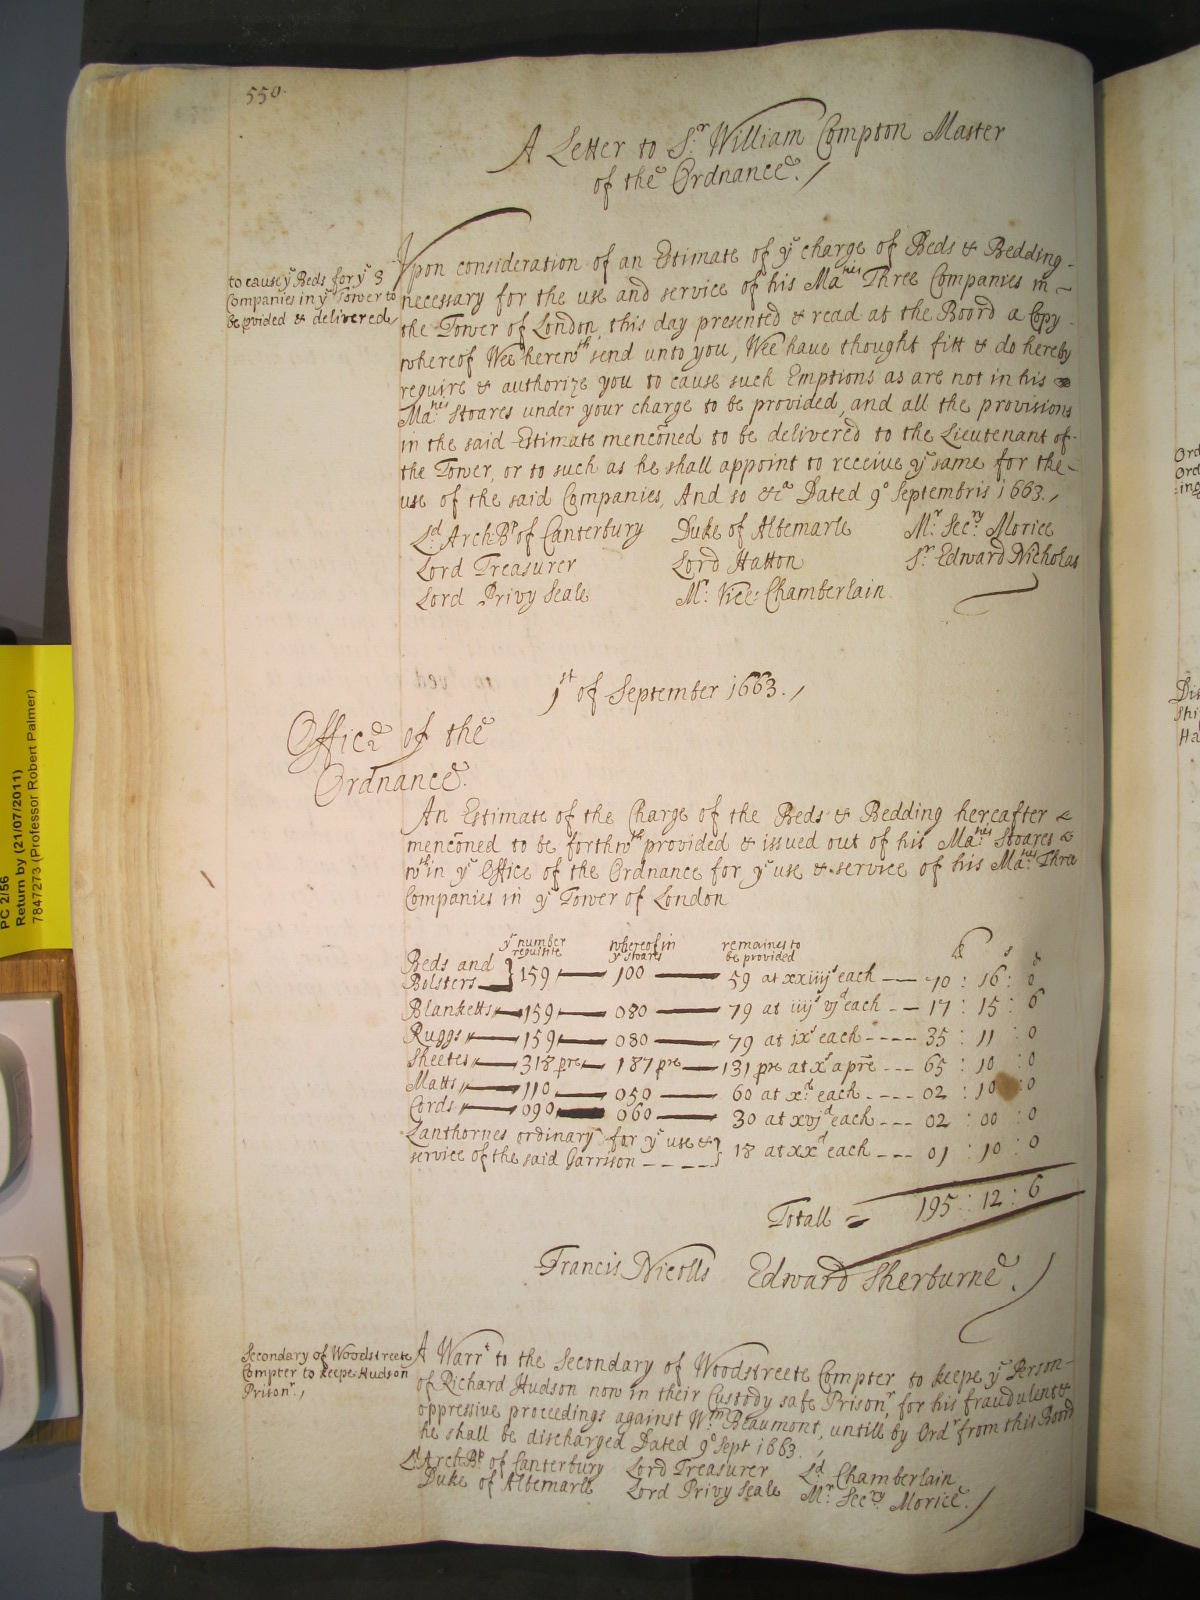 550.
A Letter to Sr. William Compton Master
of the Ordnance.
to cause ye Beds for ye 3
Companies in ye Tower to
be pvided & delivered
Vpon consideration of an Estimate of ye charge of Beds & Bedding
necessary for the use and service of his Maties Three Companies in
the Tower of London, this day presented & read at the Boord a Copy
whereof Wee herewth send unto you, Wee have thought fitt & do hereby
require & authorize you to cause such Emptions as are not in his
Maties Stoares under your charge to be provided, and all the provisions
in the said Estimate mencõned to be delivered to the Lieutenant of
the Tower, or to such as he shall appoint to receive ye same for the
use of the said Companies, And so &ca Dated 9o Septembris 1663.
Ld. Arch-Bp of Canterbury Duke of Albemarle Mr. Secry. Morice
Lord Treasurer Lord Hatton Sr. Edward Nicholas
Lord Privy Seale Mr. Vice-Chamberlain
1st of September 1663.
Office of the
Ordnance.
An Estimate of the Charge of the Beds & Bedding hereafter
mencõned to be forthwth provided & issued out of his Maties Stoares
wthin ye Office of the Ordnance for ye use & service of his Maties Three
Companies in ye Tower of London
ye number requisite whereof in ye Stoares remaines to be provided £ s d
Beds and Bolsters } 159 — 100 — 59 at xxiiijs each — 70 : 16 : 0
Blanketts — 159 — 080 — 79 at iiijs vjd each — 17 : 15 : 6
Ruggs — 159 — 080 — 79 at ixs each ---- 35 : 11 : 0
Sheetes — 318 pre — 187 pre — 131 pre at xs a pre --- 65 : 10 : 0
Matts — 110 — 050 — 60 at xd. each ---- 02 : 10 : 0
Cords — 090 — 060 — 30 at xvjd each --- 02 : 00 : 0
Lanthornes ordinary for ye use &
service of the said Garrison ---- } 18 at xxd each --- 01 : 10 : 0
Totall = 195 : 12 : 6
Francis Nicolls Edward Sherburne.
Secondary of Woodstreete
Compter to keepe Hudson
Prisonr.
A Warrt to the Secondary of Woodstreete Compter to keepe ye Person
of Richard Hudson now in their Custody safe Prisonr, for his fraudulent &
oppressive proceedings against Wm. Beaumont, untill by Ordr from this Boord
he shall be discharged Dated 9o Sept 1663.
Ld Arch-Bp. of Canterbury Lord Treasurer Ld Chamberlain
Duke of Albemarle Lord Privy Seale Mr Secry. Morice.
PC 2/56
Return by (21/07/2011)
7847273 (Professor Robert Palmer)
Ord
Ord
Ha